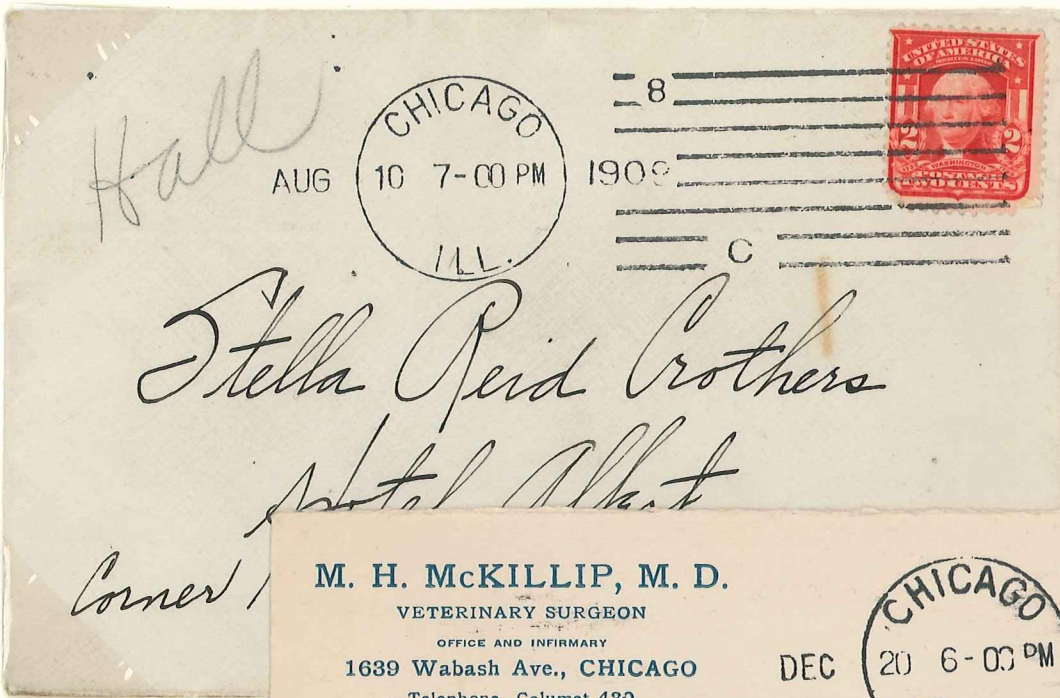 Hall
CHICAGO
AUG 10 7-00 PM 1909
ILL.
8
C
UNITED STATES
OF AMERICA
2 2
WASHINGTON
TWO CENTS
Stella Reid Crothers
Hotel Albert
Corner
M. H. McKILLIP, M. D.
VETERINARY SURGEON
OFFICE AND INFIRMARY
1639 Wabash Ave., CHICAGO
Telephone, Calumet 480
CHICAGO
DEC 20 6-00 PM